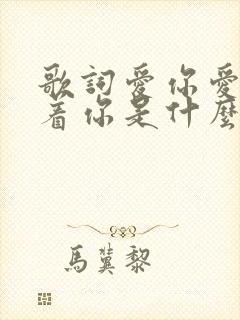 歌詞愛你愛
着你是什麼
馬冀黎